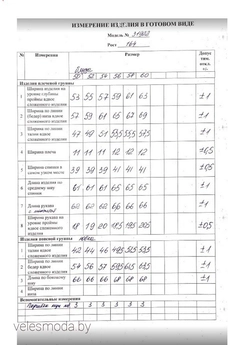 ИЗМЕРЕНИЕ ИЗДЕЛИЯ В ГОТОВОМ ВИДЕ
Модель №
Рост 164
№ Измерения Размер Допус тим. откл. +/-
50 52 54 56 58 60
Изделия плечевой группы
1 Ширина изделия на уровне глубины проймы вдоль сложенного изделия 53 55 57 59 61 63 ±1
2 Ширина по линии бедер вдоль сложенного изделия 57 59 61 65 67 69 ±1
3 Ширина по линии талии вдоль сложенного изделия 47 49 51 ±1
4 Ширина плеча 11 11 11 12 12 12 ±0,5
5 Ширина спинки в самом узком месте 39 39 39 41 41 41 ±1
6 Длина изделия по среднему шву спинки 61 61 61 65 65 65 ±1
7 Длина рукава 60 60 60 66 66 66 ±1
8 Ширина рукава на уровне проймы вдоль сложенного изделия 18 19 20 18,5 19,5 20,5 ±0,5
Изделия поясной группы
1 Ширина по линии талии вдоль сложенного изделия 42 44 46 49,5 51,5 53,5 ±1
2 Ширина по линии бедер вдоль сложенного изделия 54 56 57 59,5 61,5 63,5 ±1
3 Длина по боковому шву 66 66 66 68 68 68 ±1
4 Ширина по линии низа
Вспомогательные измерения
3 3 3 3 3 3
velesmoda.by